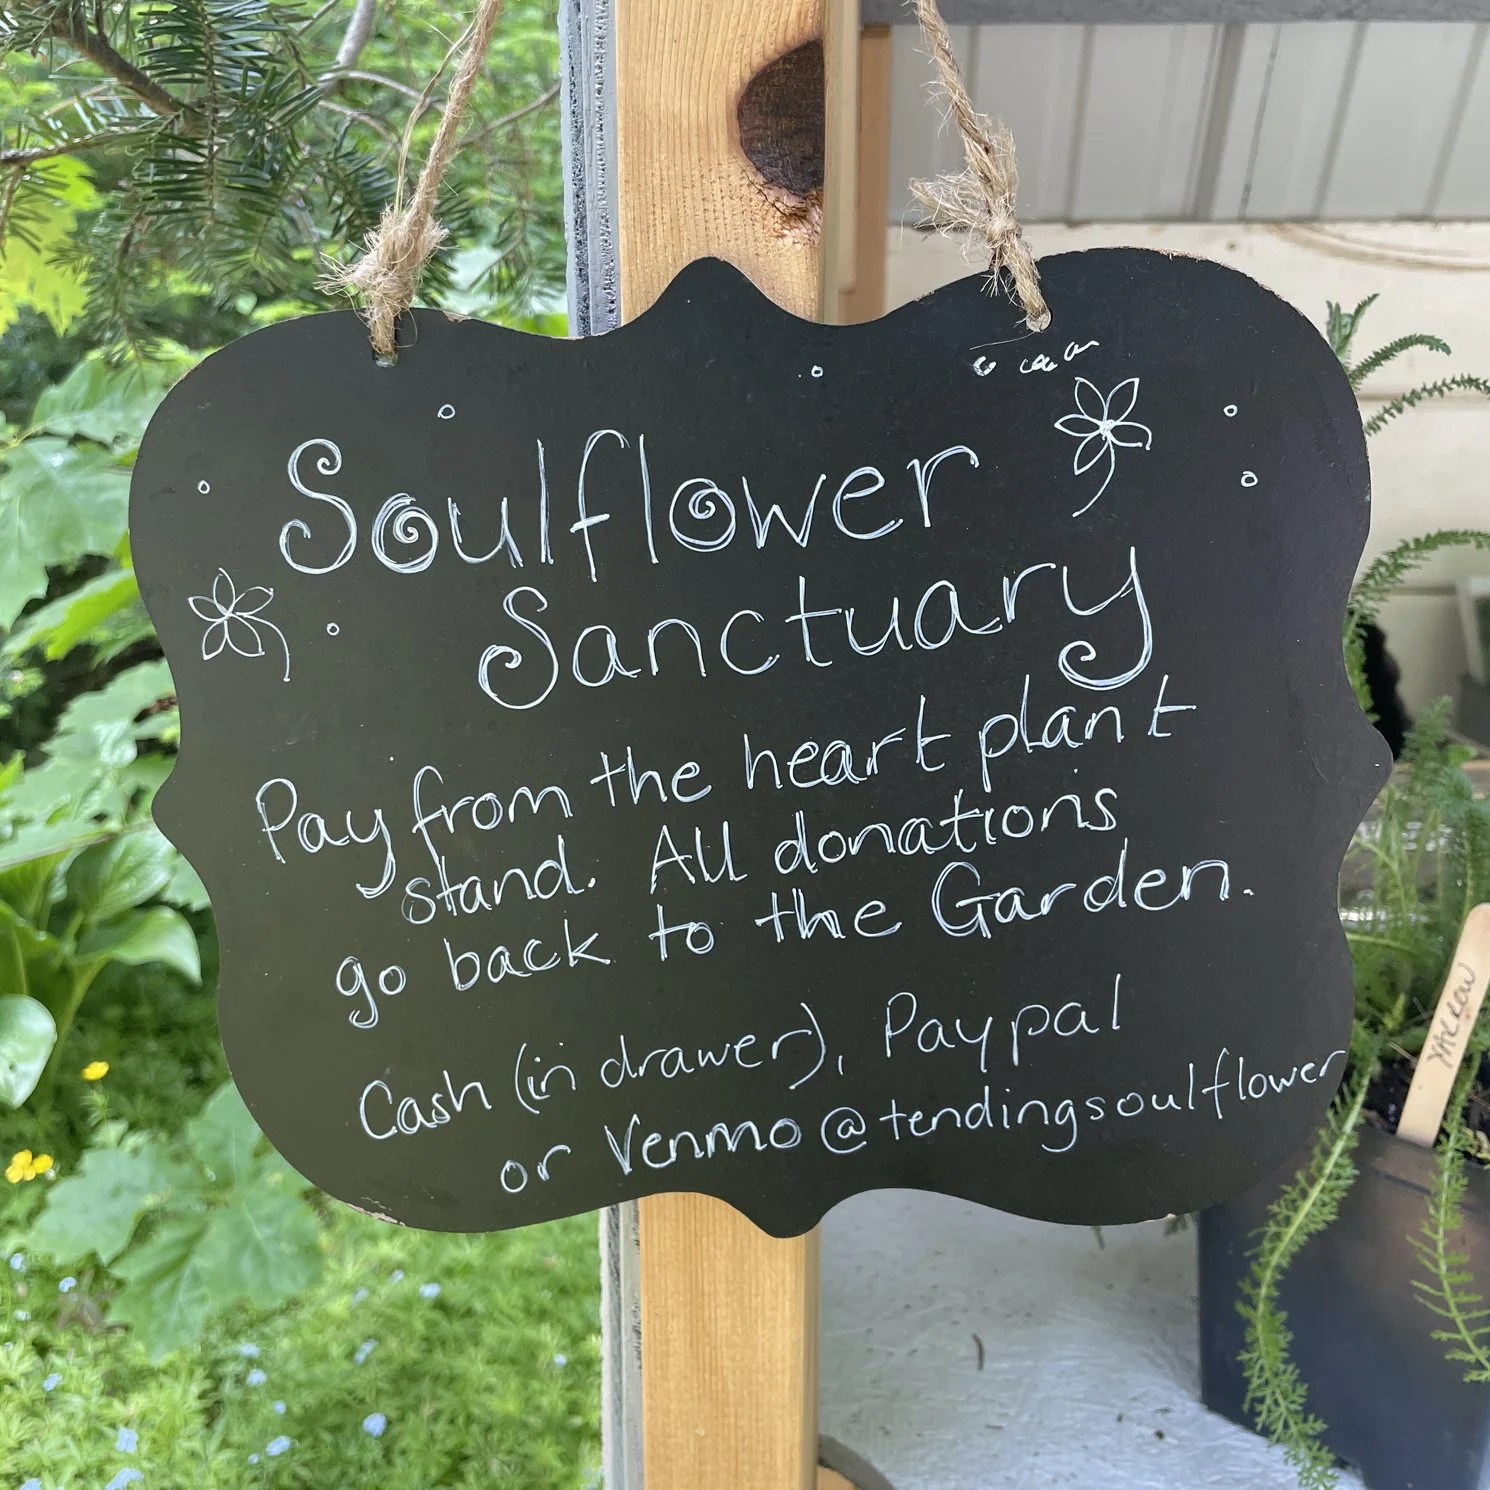 Soulflower
Sanctuary
Pay from the heart plant
stand. All donations
go back to the Garden.
Cash (in drawer), Paypal
or Venmo @tendingsoulflower
YARROW